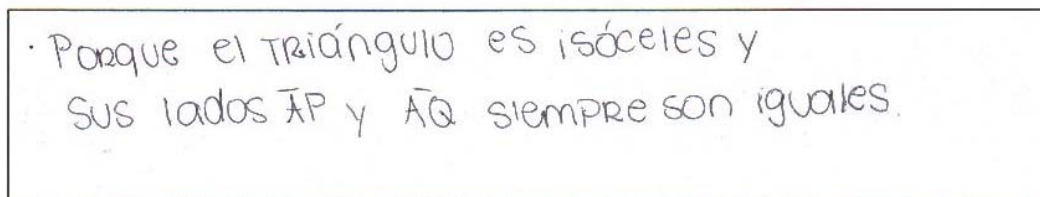 · Porque el TRiángulo es isóceles y
sus lados A̅P y A̅Q siempre son iguales.